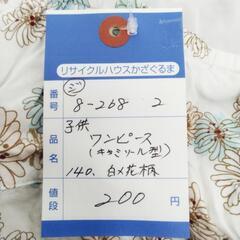 リサイクルハウスかざぐるま
ジ
番号 8-268 2
品名 子供
ワンピース
(キャミソール型)
140、白×花柄
値段 200円